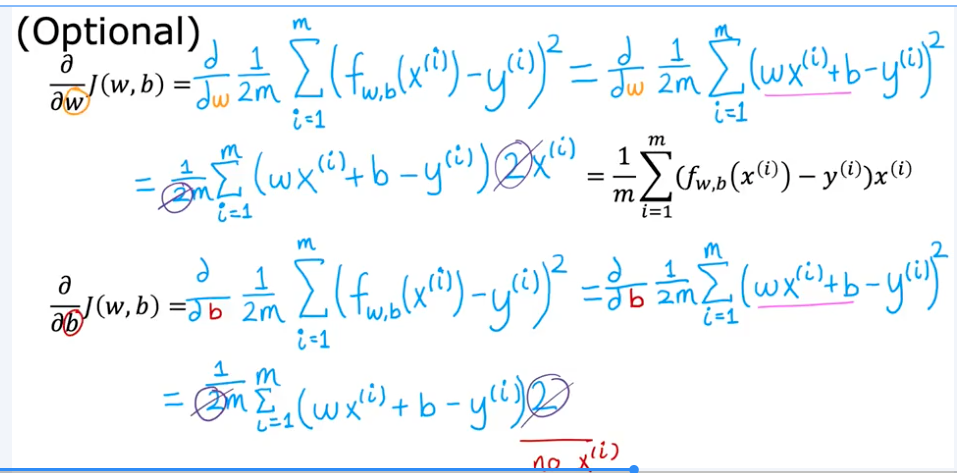 (Optional)
∂/∂w J(w, b) = d/dw 1/2m Σ_{i=1}^{m} (f_{w,b}(x^{(i)}) - y^{(i)})^2 = d/dw 1/2m Σ_{i=1}^{m} (wx^{(i)} + b - y^{(i)})^2
= 1/2m Σ_{i=1}^{m} (wx^{(i)} + b - y^{(i)}) 2x^{(i)} = 1/m Σ_{i=1}^{m} (f_{w,b}(x^{(i)}) - y^{(i)})x^{(i)}
∂/∂b J(w, b) = ∂/∂b 1/2m Σ_{i=1}^{m} (f_{w,b}(x^{(i)}) - y^{(i)})^2 = ∂/∂b 1/2m Σ_{i=1}^{m} (wx^{(i)} + b - y^{(i)})^2
= 1/2m Σ_{i=1}^{m} (wx^{(i)} + b - y^{(i)}) 2
no x^{(i)}